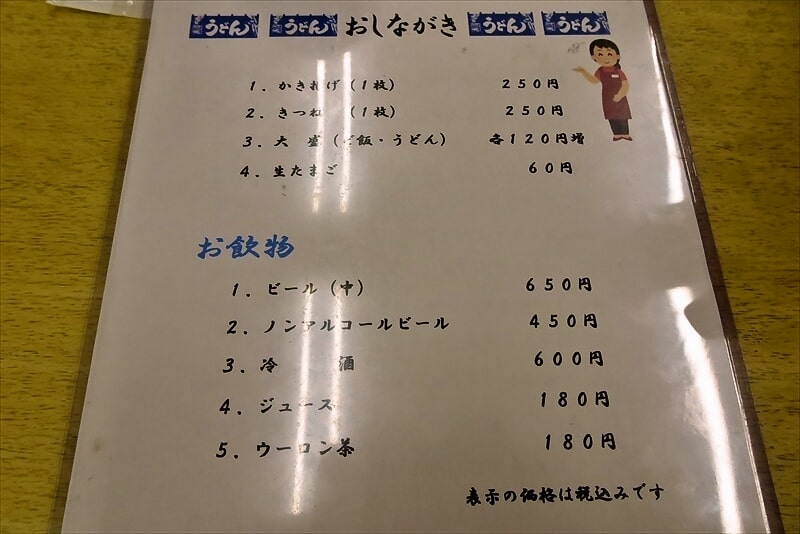 うどん うどん おしながき うどん うどん
1. かき揚げ (1枚) 250円
2. きつね (1枚) 250円
3. 大 盛 (ご飯・うどん) 各120円増
4. 生たまご 60円
お飲物
1. ビール (中) 650円
2. ノンアルコールビール 450円
3. 冷 酒 600円
4. ジュース 180円
5. ウーロン茶 180円
表示の価格は税込みです